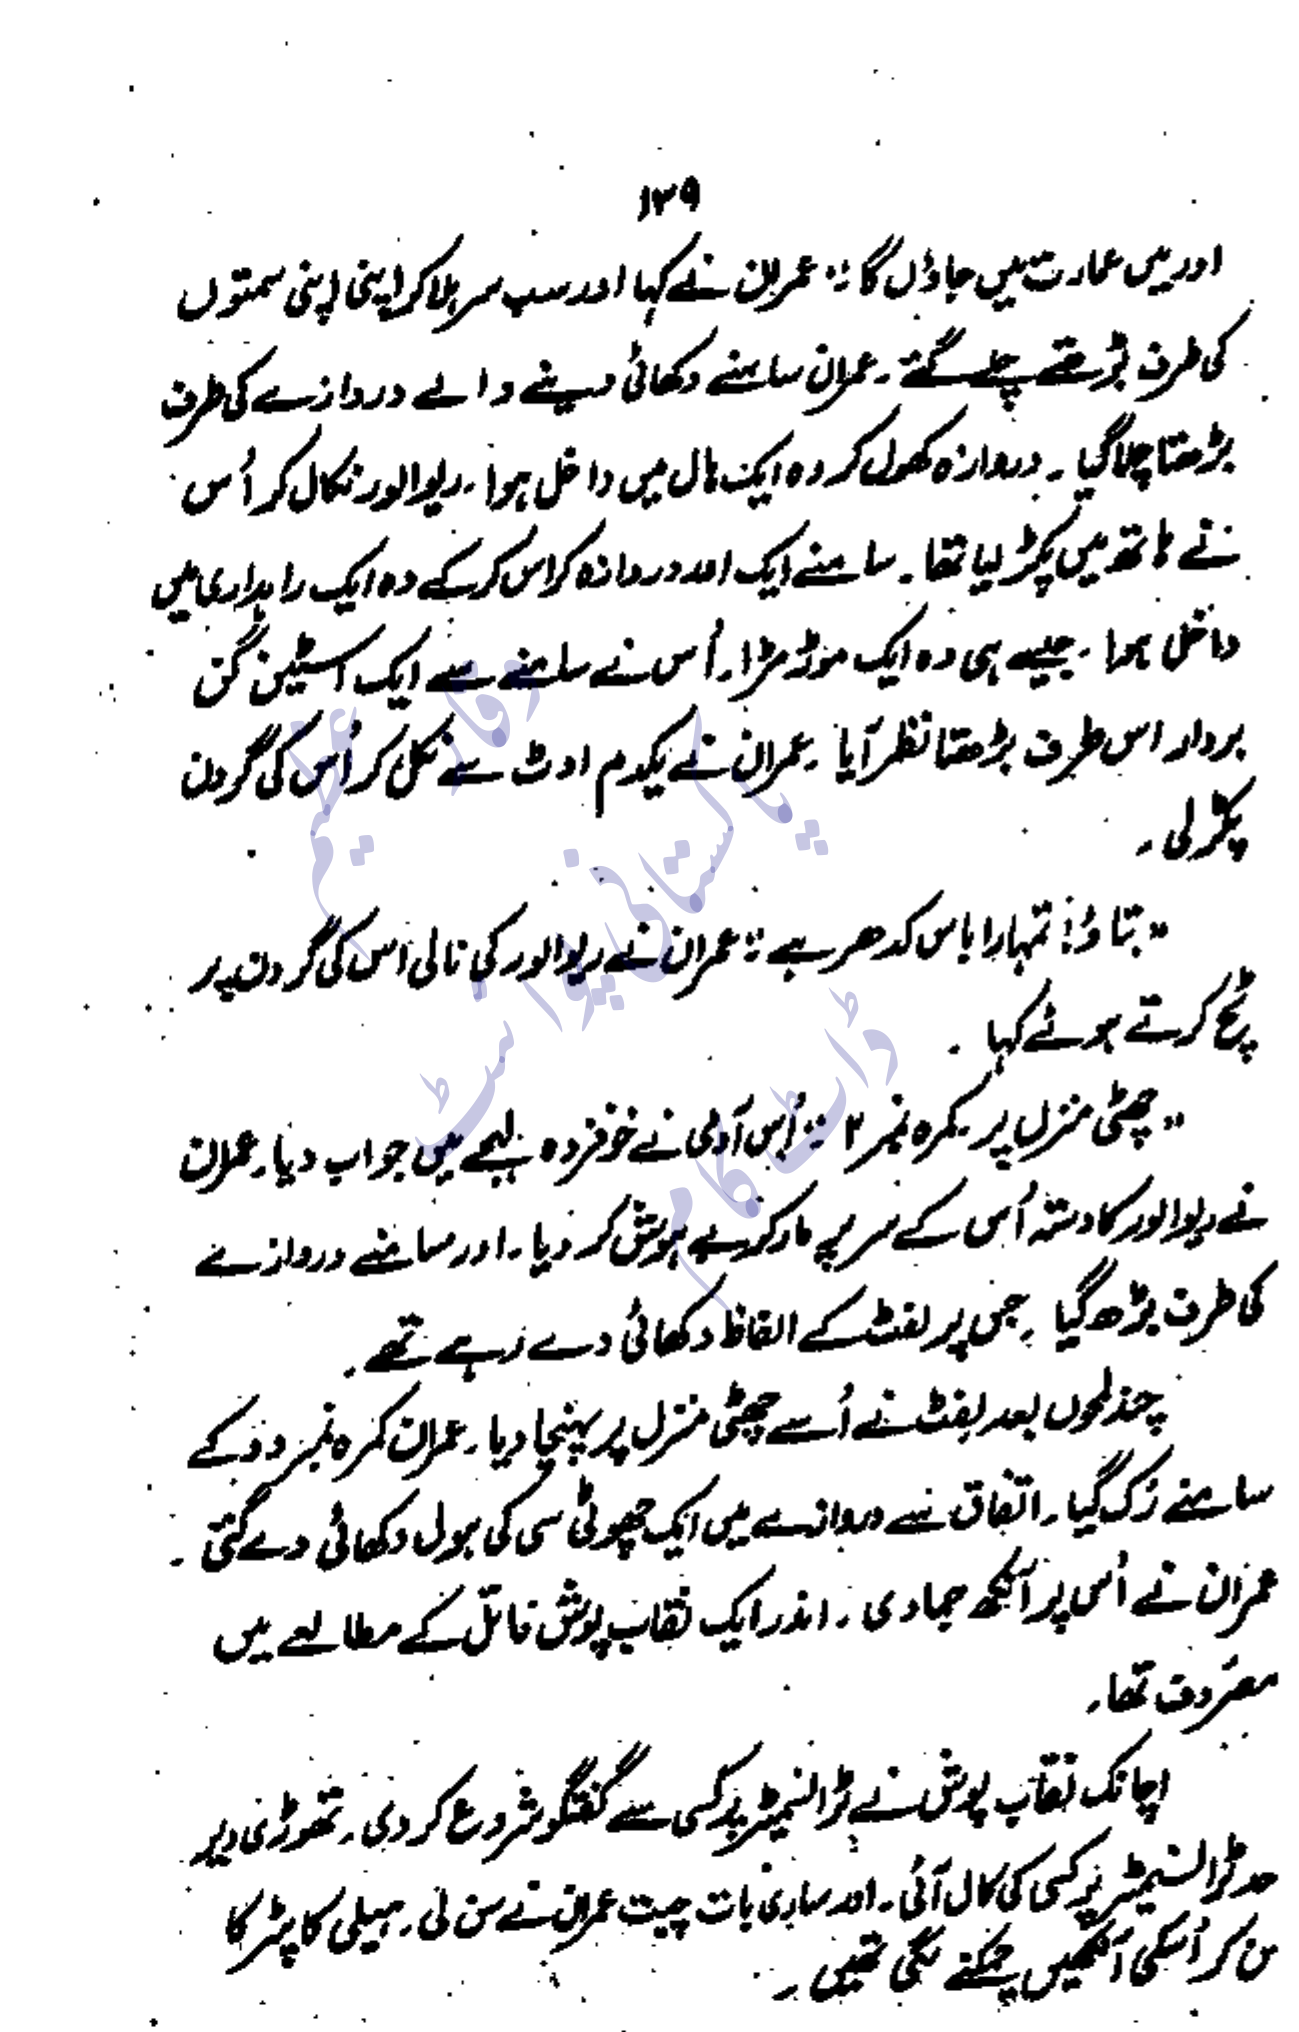 ۱۳۹
اور میں عمارت میں جاؤں گا :" عمران نے کہا اور سب سر ہلا کر اپنی اپنی سمتوں
کی طرف بڑھتے چلے گئے ۔ عمران سامنے دکھائی دینے والے دروازے کی طرف
بڑھتا چلا گیا ۔ دروازہ کھول کر وہ ایک ہال میں داخل ہوا ۔ ریوالور نکال کر اُس
نے ہاتھ میں پکڑ لیا تھا ۔ سامنے ایک اور دروازہ کراس کر کے وہ ایک راہداری میں
داخل ہوا ۔ جیسے ہی وہ ایک موڑ مڑا ۔ اُس نے سامنے سے ایک اسٹین گن
بردار اس طرف بڑھتا نظر آیا ۔ عمران نے یکدم اوٹ سے نکل کر اُس کی گردن
پکڑ لی ۔
" بتاؤ ! تمہارا باس کدھر ہے :" عمران نے ریوالور کی نالی اُس کی گردن پر
پچ کرتے ہوئے کہا ۔
" چھٹی منزل پر ۔ کمرہ نمبر ۲ :" اُس آدمی نے خوفزدہ لہجے میں جواب دیا ۔ عمران
نے ریوالور کا دستہ اُس کے سر پر مار کر بے ہوش کر دیا ۔ اور سامنے دروازے
کی طرف بڑھ گیا ۔ جس پر لفٹ کے الفاظ دکھائی دے رہے تھے ۔
چند لمحوں بعد لفٹ نے اُسے چھٹی منزل پر پہنچا دیا ۔ عمران کمرہ نمبر دو کے
سامنے رُک گیا ۔ اتفاق سے دروازے میں ایک چھوٹی سی کی ہول دکھائی دے گئی ۔
عمران نے اُس پر آنکھ جما دی ۔ اندر ایک نقاب پوش فائل کے مطالعے میں
مصروف تھا ۔
اچانک نقاب پوش نے ٹرانسمیٹر پر کسی سے گفتگو شروع کر دی ۔ تھوڑی دیر
عد ٹرانسمیٹر پر کسی کی کال آئی ۔ اور ساری بات چیت عمران نے سن لی ۔ ہیلی کاپٹر کا
ن کر اُسکی آنکھیں چمکنے لگی تھیں ۔
وقار عظیم
پاکستانی پوائنٹ
ڈاٹ کام